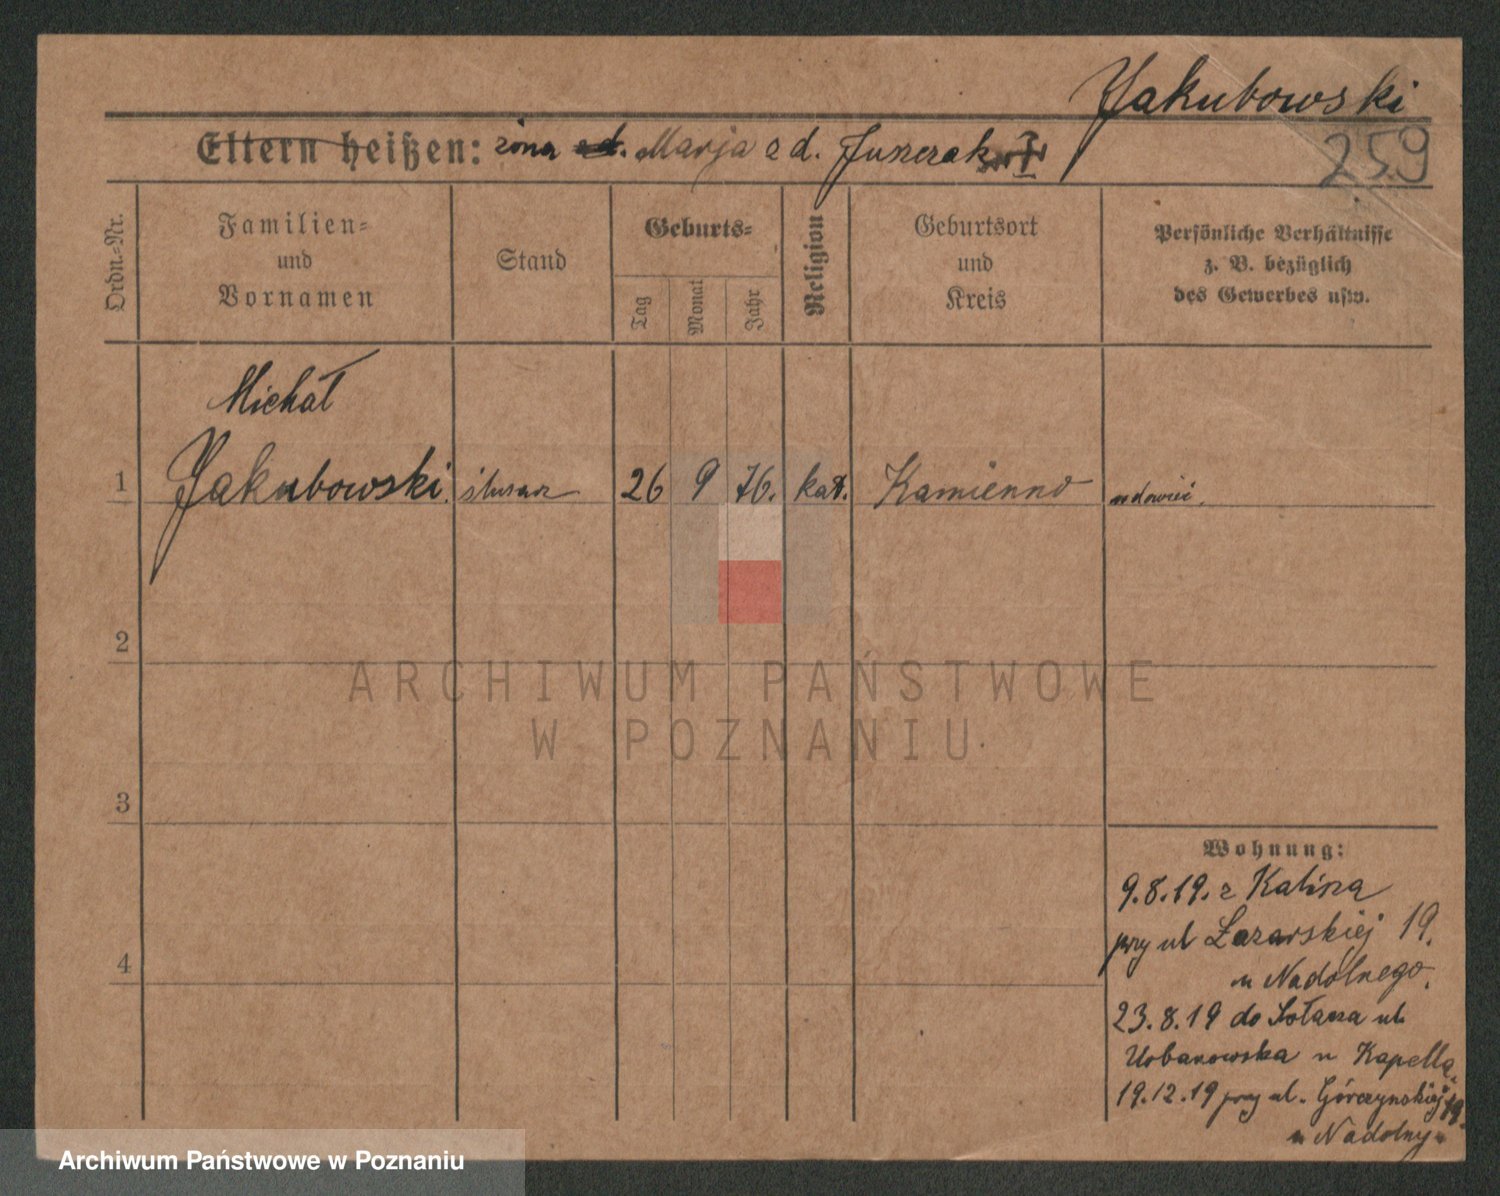 Jakubowski
259
Eltern heißen: żona Marja z d. Juszczak
Ordn.-Nr.
Familien-
und
Vornamen
Stand
Geburts-
Tag
Monat
Jahr
Religion
Geburtsort
und
Kreis
Persönliche Verhältnisse
z. B. bezüglich
des Gewerbes usw.
Michał
1 Jakubowski ślusarz 26 9 76. kat. Kamienno wdowiec
2
3
4
Wohnung:
9.8.19. z Kalisza
przy ul Łazarskiej 19.
u Nadolnego.
23.8.19 do Sołacza ul.
Urbanowska u Kapella
19.12.19 przy ul. Górczyńskiej 19.
u Nadolny
ARCHIWUM PAŃSTWOWE
W POZNANIU
Archiwum Państwowe w Poznaniu